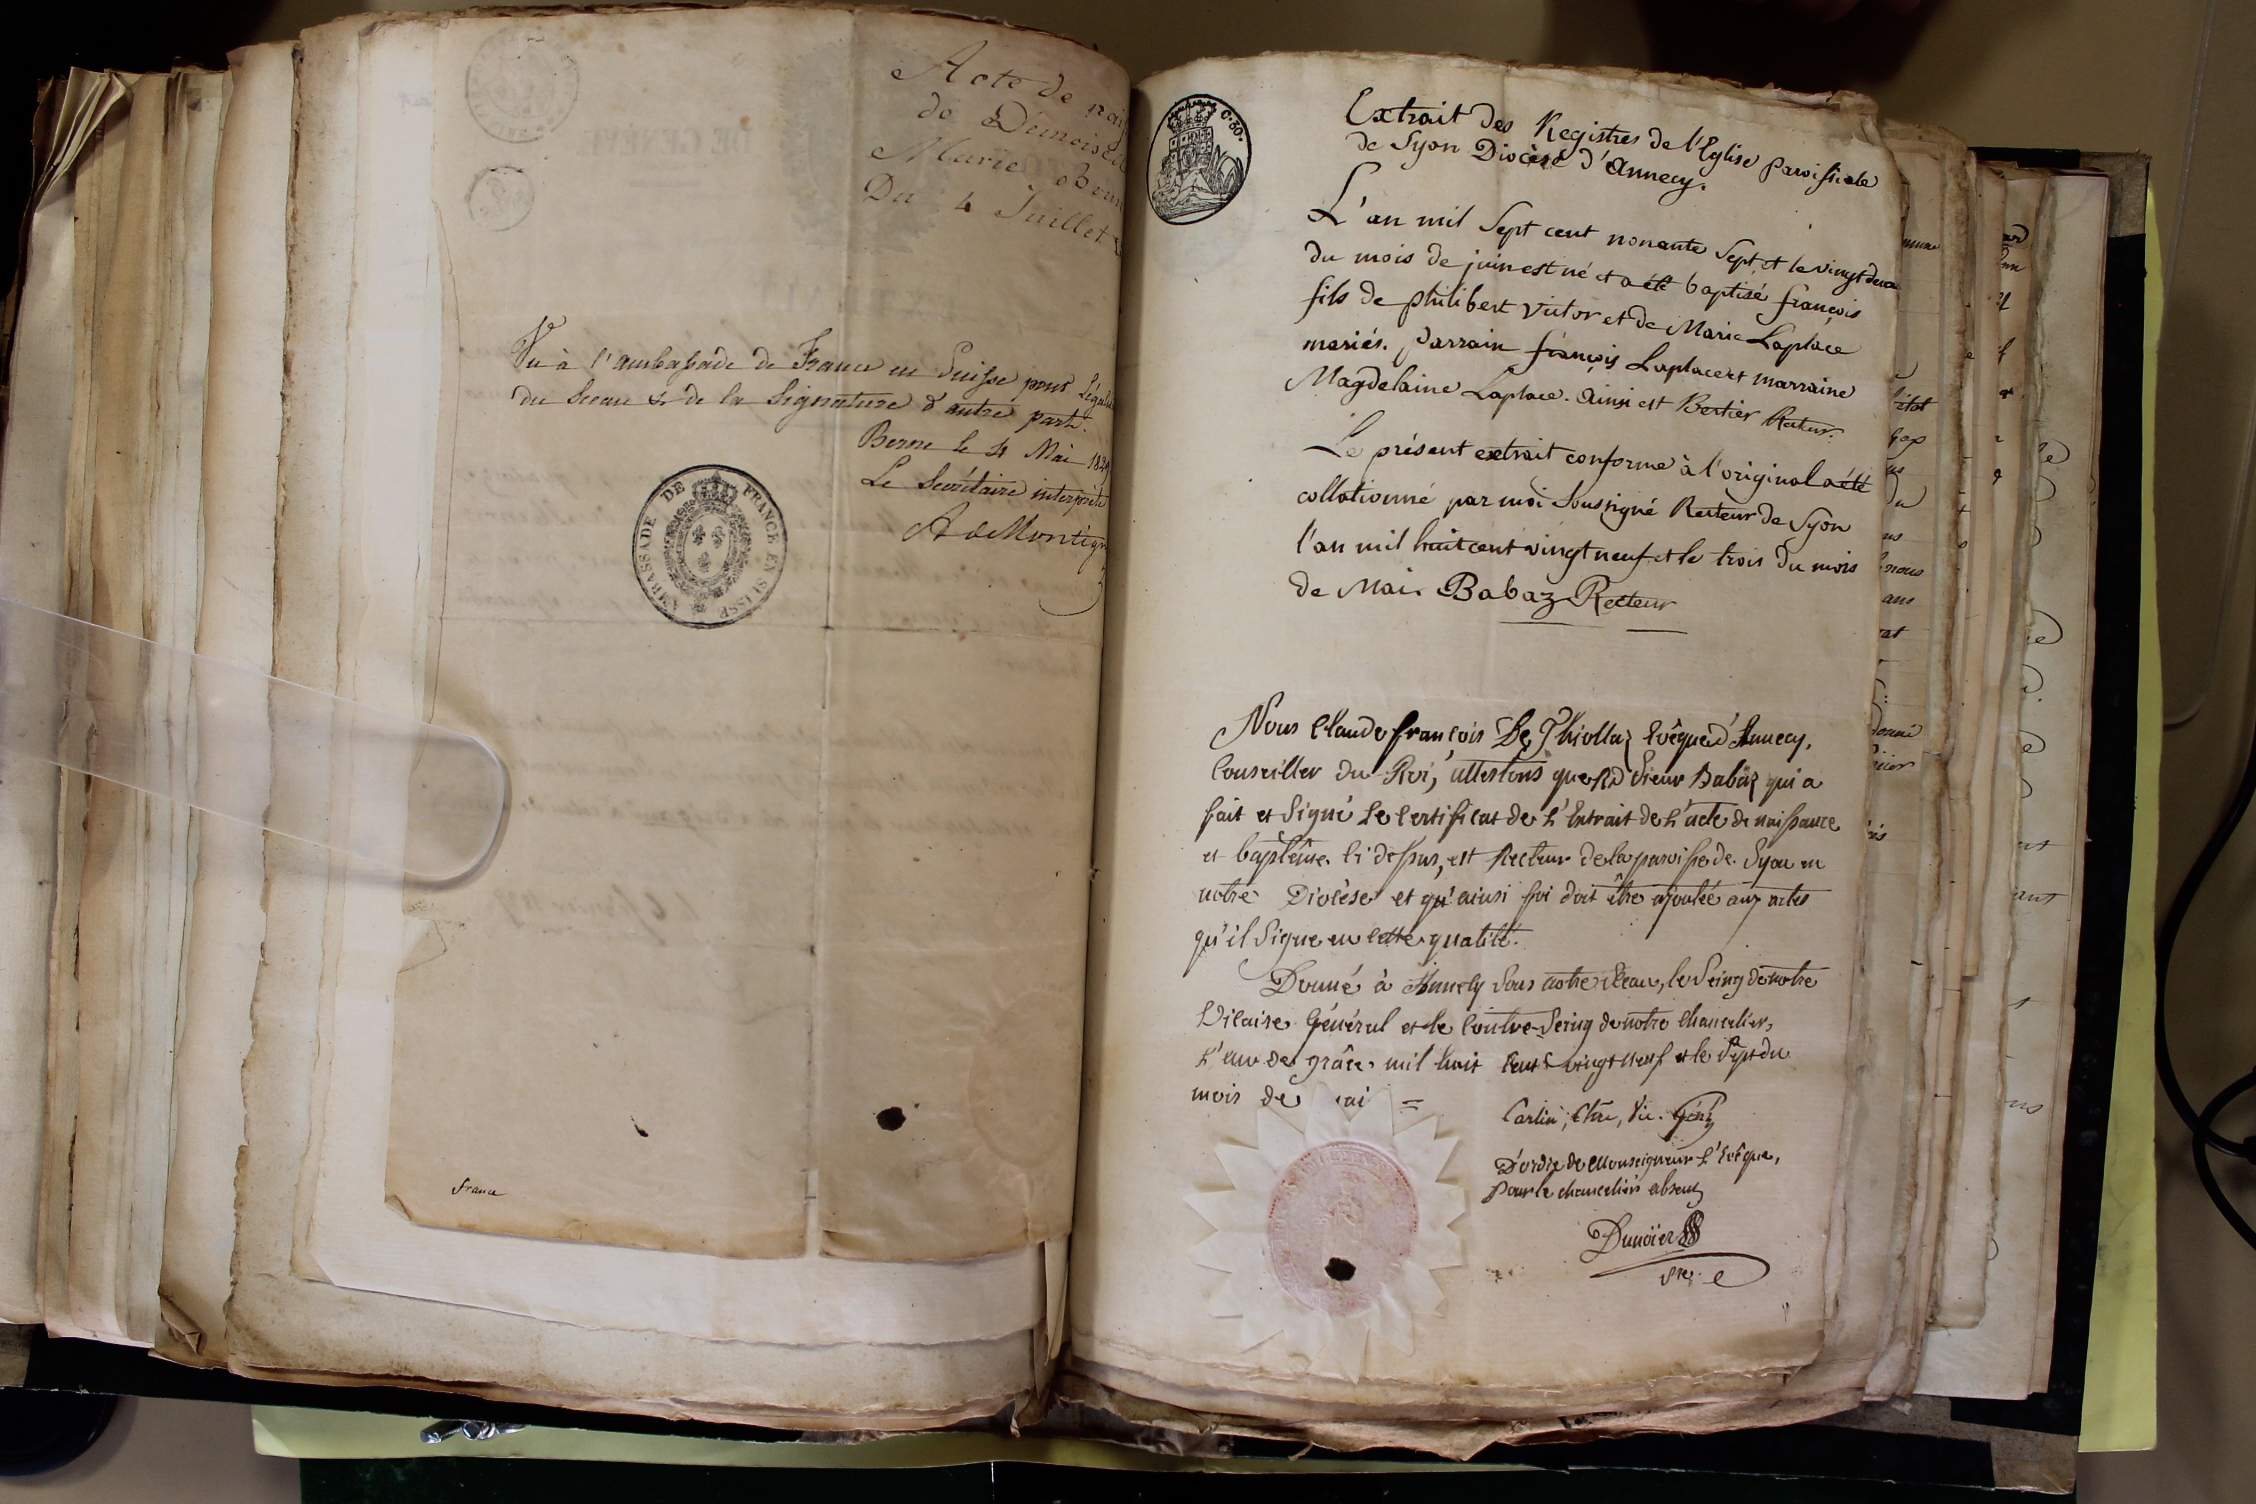 Acte de nais
de Demoiselle
Marie
Du 4 Juillet
DE GENÈVE
Vu à l'ambassade de France en Suisse pour Légali
du Sceau & de la Signature d'autre part.
Berne le 4 Mai 1829
Le Secrétaire interprète
A de Montign
AMBASSADE DE FRANCE EN SUISSE
france
C. 50.
Extrait des Registres de l'Eglise paroissiale
de Syon Diocèse d'Annecy.
L'an mil Sept cent nonante Sept et le vingt deux
du mois de juin est né et a été baptisé françois
fils de philibert Victor et de Marie Laplace
mariés. parrain françois Laplace et marraine
Magdelaine Laplace. Ainsi est Bertier Recteur.
Le présent extrait conforme à l'original a été
collationné par moi Soussigné Recteur de Syon
l'an mil huit cent vingt neuf et le trois du mois
de Mai. Babaz Recteur
Nous Claude françois De Thiollaz Evêque d'Annecy,
Conseiller du Roi, attestons que Rd Sieur Babaz qui a
fait et Signé le Certificat de l'Extrait de l'acte de naissance
et baptême ci dessus, est Recteur de la paroisse de Syon en
notre Diocèse et qu'ainsi foi doit être ajoutée aux actes
qu'il Signe en cette qualité.
Donné à Annecy Sous notre Sceau, le Seing de notre
Vicaire Général et le Contre-Seing de notre Chancelier,
L'an de grâce mil huit Cent vingt neuf et le Sept du
mois de mai =
Carlin, Chne, Vic. Génl
D'ordre de Monseigneur l'Evêque,
Pour le chancelier absent
Dunoïer